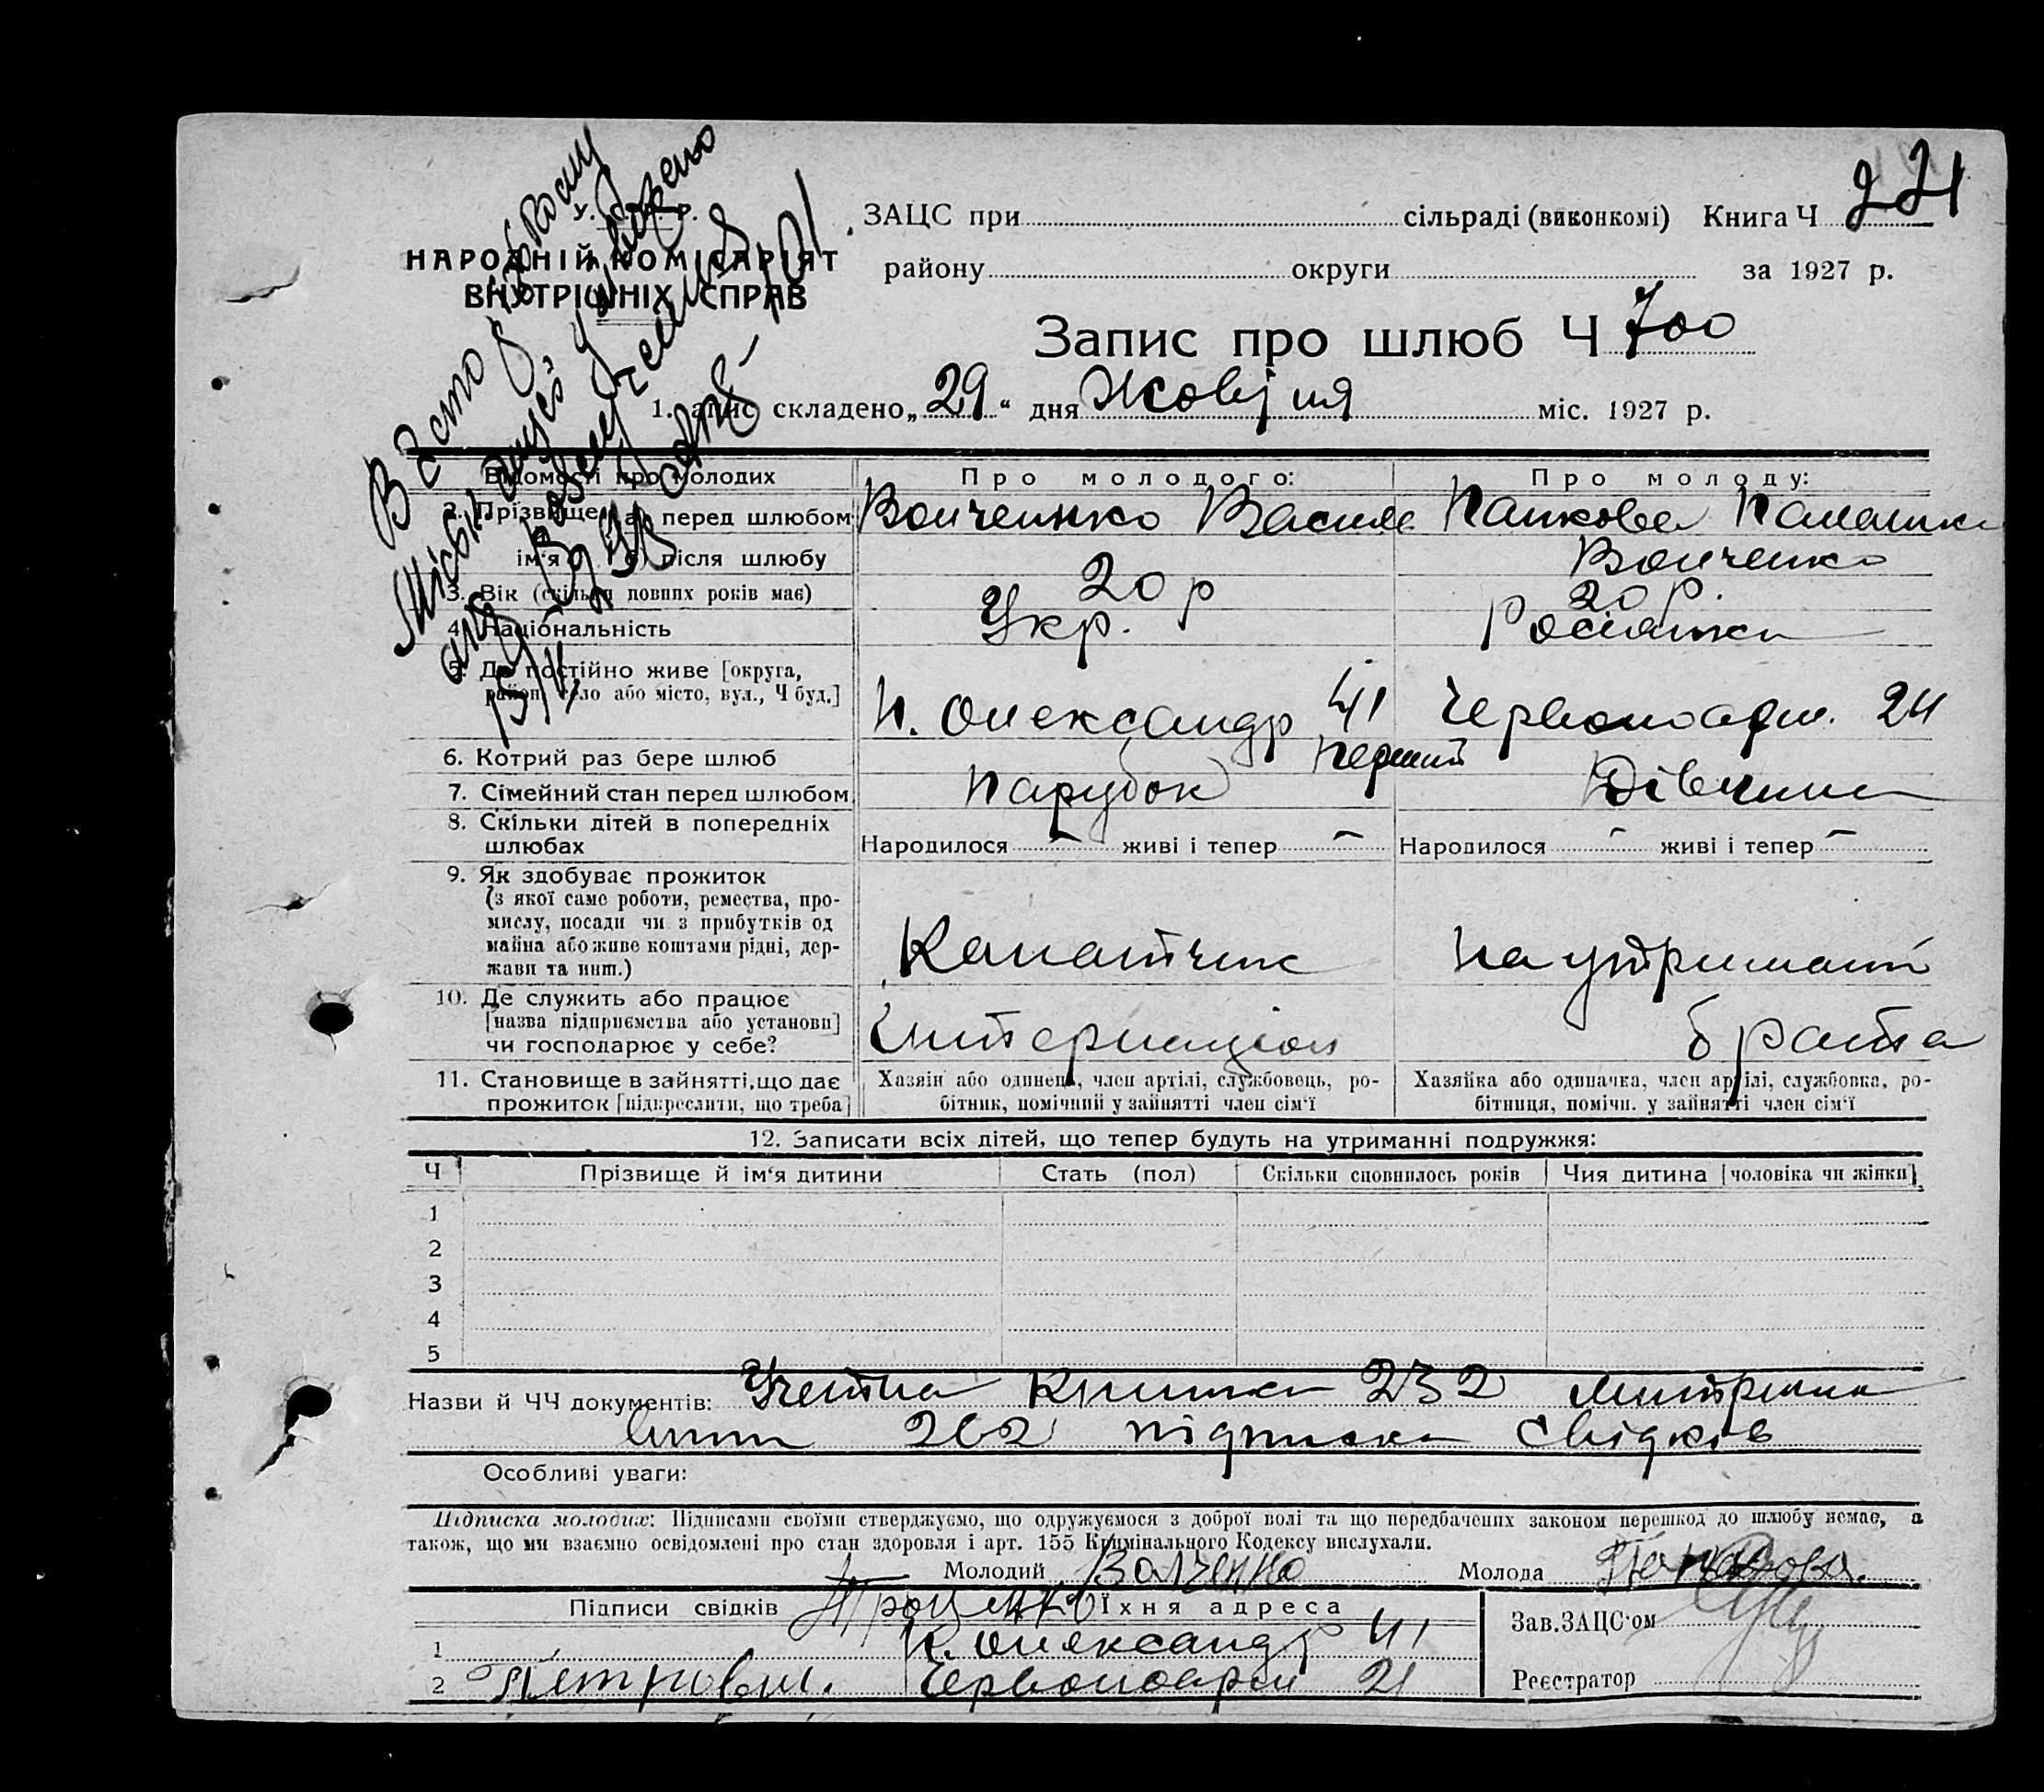 У. С. Р. Р.
НАРОДНІЙ КОМІСАРІЯТ
ВНУТРІШНІХ СПРАВ
ЗАЦС при сільраді (виконкомі) Книга Ч 221
району округи за 1927 р.
Запис про шлюб Ч 700
1. Запис складено „29“ дня Жовтня міс. 1927 р.
Відомості про молодих
Про молодого:
Про молоду:
2. Прізвище й ім'я а) перед шлюбом
Волченко Василь
Панкова Паланка
б) після шлюбу
Волченко
3. Вік (скільки повних років має)
20 р
20 р.
4. Національність
Укр.
Росіянка
5. Де постійно живе [округа, район, село або місто, вул., Ч буд.]
К. Олександр 41
Червоноарм. 24
6. Котрий раз бере шлюб
перший
7. Сімейний стан перед шлюбом
парубок
Дівчина
8. Скільки дітей в попередніх шлюбах
Народилося – живі і тепер –
Народилося – живі і тепер –
9. Як здобуває прожиток
(з якої саме роботи, ремества, про-
мислу, посади чи з прибутків од
майна або живе коштами рідні, дер-
жави та инш.)
Канатчик
на утриманні
10. Де служить або працює
[назва підприємства або установи]
чи господарює у себе?
Интернаціон
брата
11. Становище в зайнятті, що дає
прожиток [підкреслити, що треба]
Хазяїн або одинець, член артілі, службовець, ро-
бітник, помічний у зайнятті член сім'ї
Хазяйка або одиначка, член артілі, службовка, ро-
бітниця, помічн. у зайнятті член сім'ї
12. Записати всіх дітей, що тепер будуть на утриманні подружжя:
Ч Прізвище й ім'я дитини Стать (пол) Скільки сповнилось років Чия дитина [чоловіка чи жінки]
1
2
3
4
5
Назви й ЧЧ документів: Учетна Книжка 232
262 підписка свідків
Особливі уваги:
Підписка молодих: Підписами своїми стверджуємо, що одружуємося з доброї волі та що передбачених законом перешкод до шлюбу немає, а
також, що ми взаємно освідомлені про стан здоровля і арт. 155 Кримінального Кодексу вислухали.
Молодий Волченко Молода Панкова.
Підписи свідків Їхня адреса
Зав. ЗАЦС'ом
1 Троценко К. Олександр 41
2 Червоноарм 21
Реєстратор